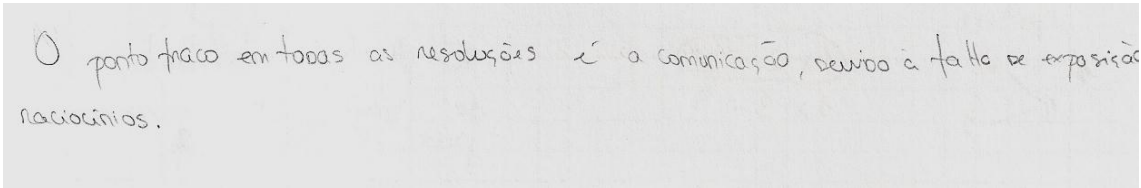 O ponto fraco em todas as resoluções é a comunicação, devido à falta de exposição
raciocínios.